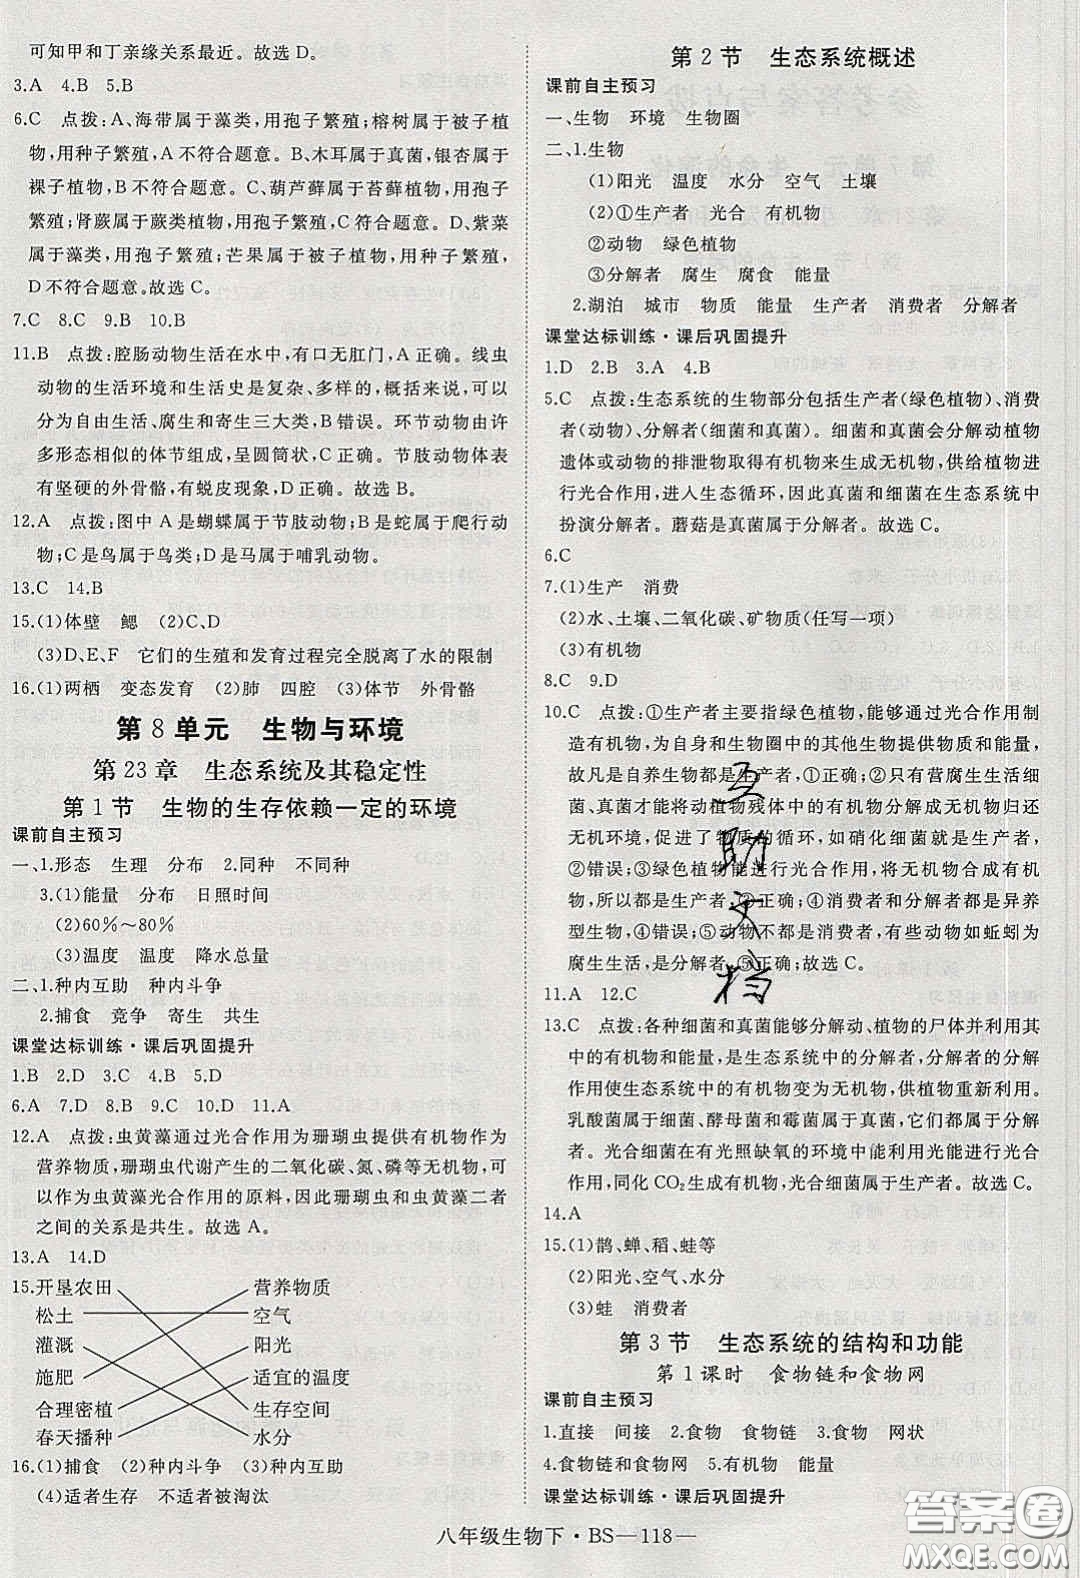 可知甲和丁亲缘关系最近。故选D。
3.A 4.B 5.B
6.C 点拨:A、海带属于藻类,用孢子繁殖;榕树属于被子植
物,用种子繁殖,A不符合题意。B、木耳属于真菌,银杏属于
裸子植物,B不符合题意。C、葫芦藓属于苔藓植物,用孢子
繁殖;肾蕨属于蕨类植物,用孢子繁殖,C符合题意。D、紫菜
属于藻类,用孢子繁殖;芒果属于被子植物,用种子繁殖,
D不符合题意。故选C。
7.C 8.C 9.B 10.B
11.B 点拨:腔肠动物生活在水中,有口无肛门,A正确。线虫
动物的生活环境和生活史是复杂、多样的,概括来说,可以
分为自由生活、腐生和寄生三大类,B错误。环节动物由许
多形态相似的体节组成,呈圆筒状,C正确。节肢动物体表
有坚硬的外骨骼,有蜕皮现象,D正确。故选B。
12.A 点拨:图中A是蝴蝶属于节肢动物;B是蛇属于爬行动
物;C是鸟属于鸟类;D是马属于哺乳动物。
13.C 14.B
15.(1)体壁 鳃 (2)C、D
(3)D、E、F 它们的生殖和发育过程完全脱离了水的限制
16.(1)两栖 变态发育 (2)肺 四腔 (3)体节 外骨骼
第8单元 生物与环境
第23章 生态系统及其稳定性
第1节 生物的生存依赖一定的环境
课前自主预习
一、1.形态 生理 分布 2.同种 不同种
3.(1)能量 分布 日照时间
(2)60%~80%
(3)温度 温度 降水总量
二、1.种内互助 种内斗争
2.捕食 竞争 寄生 共生
课堂达标训练·课后巩固提升
1.B 2.D 3.C 4.B 5.D
6.A 7.D 8.B 9.C 10.D 11.A
12.A 点拨:虫黄藻通过光合作用为珊瑚虫提供有机物作为
营养物质,珊瑚虫代谢产生的二氧化碳、氮、磷等无机物,可
以作为虫黄藻光合作用的原料,因此珊瑚虫和虫黄藻二者
之间的关系是共生。故选A。
13.A 14.D
15.开垦农田 营养物质
松土 空气
灌溉 阳光
施肥 适宜的温度
合理密植 生存空间
春天播种 水分
16.(1)捕食 (2)种内斗争 (3)种内互助
(4)适者生存 不适者被淘汰
第2节 生态系统概述
课前自主预习
一、生物 环境 生物圈
二、1.生物
(1)阳光 温度 水分 空气 土壤
(2)①生产者 光合 有机物
②动物 绿色植物
③分解者 腐生 腐食 能量
2.湖泊 城市 物质 能量 生产者 消费者 分解者
课堂达标训练·课后巩固提升
1.D 2.B 3.A 4.B
5.C 点拨:生态系统的生物部分包括生产者(绿色植物)、消费
者(动物)、分解者(细菌和真菌)。细菌和真菌会分解动植物
遗体或动物的排泄物取得有机物来生成无机物,供给植物进
行光合作用,进入生态循环,因此真菌和细菌在生态系统中
扮演分解者。蘑菇是真菌属于分解者。故选C。
6.C
7.(1)生产 消费
(2)水、土壤、二氧化碳、矿物质(任写一项)
(3)有机物
8.C 9.D
10.C 点拨:①生产者主要指绿色植物,能够通过光合作用制
造有机物,为自身和生物圈中的其他生物提供物质和能量,
故凡是自养生物都是生产者,①正确;②只有营腐生生活的
细菌、真菌才能将动植物残体中的有机物分解成无机物归还
无机环境,促进了物质的循环,如硝化细菌就是生产者,
②错误;③绿色植物能进行光合作用,将无机物合成有机
物,所以都是生产者,③正确;④消费者和分解者都是异养
型生物,④错误;⑤动物不都是消费者,有些动物如蚯蚓为
腐生生活,是分解者,⑤正确;故选C。
11.A 12.C
13.C 点拨:各种细菌和真菌能够分解动、植物的尸体并利用其
中的有机物和能量,是生态系统中的分解者,分解者的分解
作用使生态系统中的有机物变为无机物,供植物重新利用。
乳酸菌属于细菌、酵母菌和霉菌属于真菌,它们都属于分解
者。光合细菌在有光照缺氧的环境中能进行光合作用,利用光
能,同化CO₂生成有机物,光合细菌属于生产者。故选C。
14.A
15.(1)鹊、蝉、稻、蛙等
(2)阳光、空气、水分
(3)蛙 消费者
第3节 生态系统的结构和功能
第1课时 食物链和食物网
课前自主预习
1.直接 间接 2.食物 食物链 3.食物链 食物 网状
4.食物链和食物网 5.有机物 能量
课堂达标训练·课后巩固提升
八年级生物下·BS—118—
互助文档
答案圈
MXQE.COM